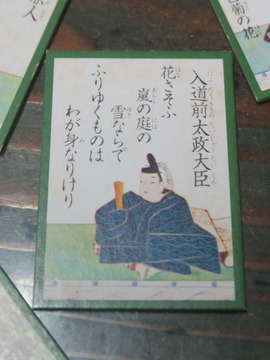 入道前太政大臣
花さそふ
嵐の庭の
雪ならで
ふりゆくものは
わが身なりけり